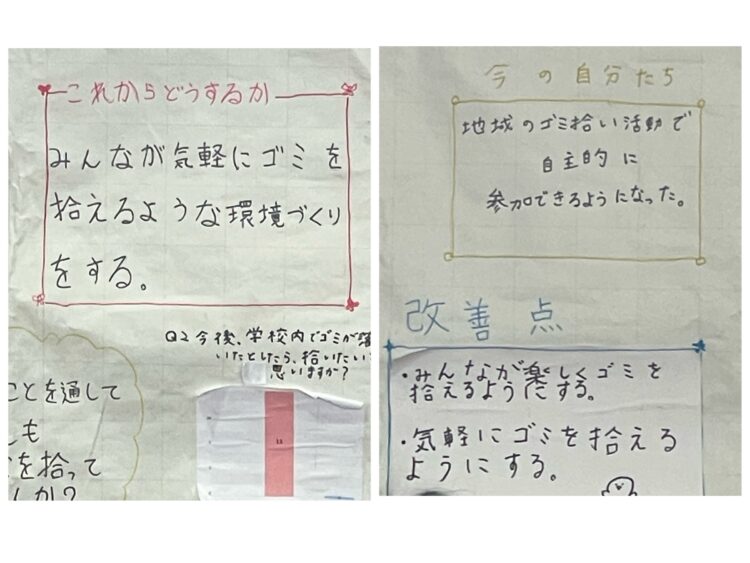 これからどうするか
みんなが気軽にゴミを
拾えるような環境づくり
をする。
Q2 今後、学校内でゴミが落
いたとしたら、拾いたい
思いますか?
ことを通して
も
を拾って
か?
11
今の自分たち
地域のゴミ拾い活動で
自主的に
参加できるようになった。
改善点
・みんなが楽しくゴミを
拾えるようにする。
・気軽にゴミを拾える
ようにする。